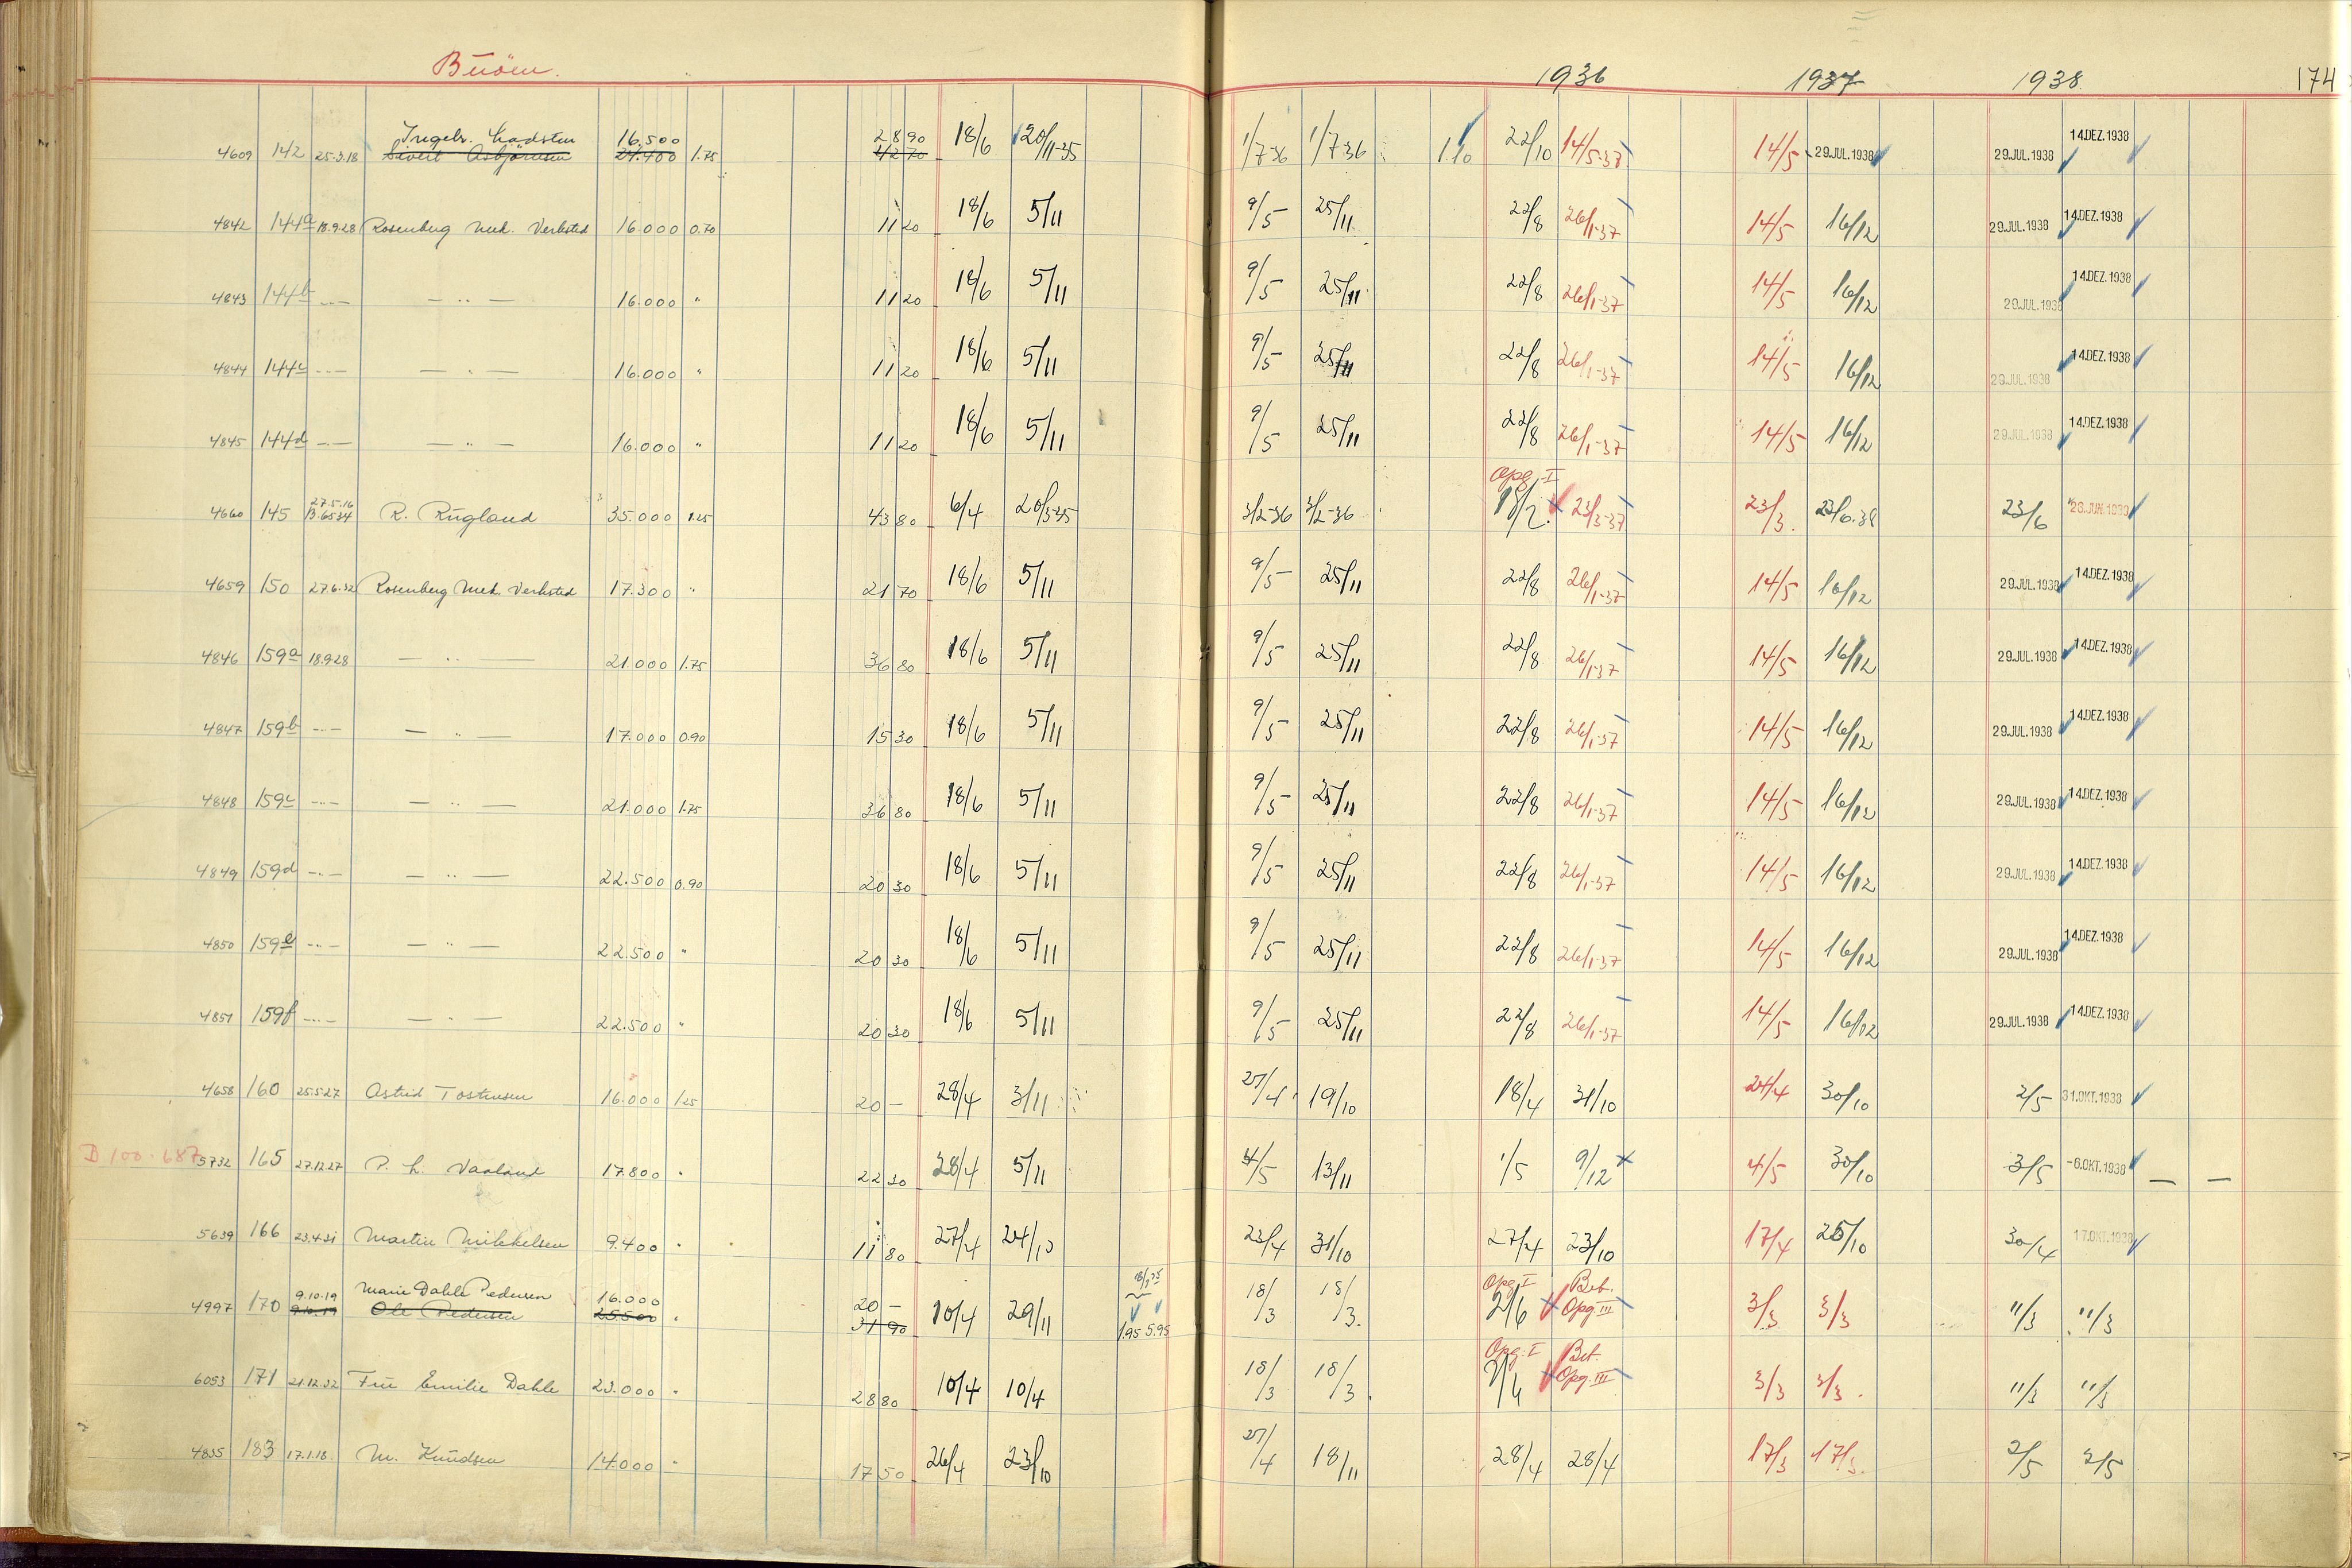 Buöen.
1936 1937 1938. 174
Ingebr. Madsten 16.500 28 90
4609 142 25.3.18 Sivert Asbjörnsen 24.400 1.75 42 70 18/6 20/11-35 1/7-36 1/7-36 1.10 22/10 14/5-37 14/5 29.JUL.1938 29.JUL.1938 14.DEZ.1938
4842 144a 18.9.28 Rosenberg mek. Verksted 16.000 0.70 11 20 18/6 5/11 9/5 25/11 22/8 26/1-37 14/5 16/12 29.JUL.1938 14.DEZ.1938
4843 144b -..- - .. - 16.000 " 11 20 18/6 5/11 9/5 25/11 22/8 26/1-37 14/5 16/12 29.JUL.1938 14.DEZ.1938
4844 144c -..- - .. - 16.000 " 11 20 18/6 5/11 9/5 25/11 22/8 26/1-37 14/5 16/12 29.JUL.1938 14.DEZ.1938
4845 144d -..- - .. - 16.000 " 11 20 18/6 5/11 9/5 25/11 22/8 26/1-37 14/5 16/12 29.JUL.1938 14.DEZ.1938
27.5.16 Opg. I
4660 145 13.6.34 R. Rugland 35.000 1.25 43 80 6/4 20/3-35 3/2-36 3/2-36 18/2. 23/3-37 23/3. 23/6.38 23/6 23.JUN.1938
4659 150 27.6.32 Rosenberg mek. Verksted 17.300 " 21 70 18/6 5/11 9/5 25/11 22/8 26/1-37 14/5 16/12 29.JUL.1938 14.DEZ.1938
4846 159a 18.9.28 - .. - 21.000 1.75 36 80 18/6 5/11 9/5 25/11 22/8 26/1-37 14/5 16/12 29.JUL.1938 14.DEZ.1938
4847 159b -..- - .. - 17.000 0.90 15 30 18/6 5/11 9/5 25/11 22/8 26/1-37 14/5 16/12 29.JUL.1938 14.DEZ.1938
4848 159c -..- - .. - 21.000 1.75 36 80 18/6 5/11 9/5 25/11 22/8 26/1-37 14/5 16/12 29.JUL.1938 14.DEZ.1938
4849 159d -..- - .. - 22.500 0.90 20 30 18/6 5/11 9/5 25/11 22/8 26/1-37 14/5 16/12 29.JUL.1938 14.DEZ.1938
4850 159e -..- - .. - 22.500 " 20 30 18/6 5/11 9/5 25/11 22/8 26/1-37 14/5 16/12 29.JUL.1938 14.DEZ.1938
4851 159f -..- - .. - 22.500 " 20 30 18/6 5/11 9/5 25/11 22/8 26/1-37 14/5 16/12 29.JUL.1938 14.DEZ.1938
4658 160 25.5.27 Astrid Tostensen 16.000 1.25 20 - 28/4 3/11 27/4 19/10 18/4 31/10 24/4 30/10 2/5 31.OKT.1938
D 100.687 5732 165 27.12.27 P. L. Vaaland 17.800 " 22 30 28/4 5/11 4/5 13/11 1/5 9/12 4/5 30/10 3/5 -6.OKT.1938 - -
5639 166 23.4.31 Martin Mikkelsen 9.400 " 11 80 27/4 24/10 23/4 31/10 27/4 23/10 17/4 25/10 30/4 17.OKT.1938
9.10.19 Marie Dahle Pedersen 16.000 20 - Opg. I Bet.
4997 170 9.10.19 Ole Pedersen 25.500 " 31 90 10/4 29/11 1.95 5.95 18/3 18/3. 2/6 Opg. III 3/3 3/3 11/3 11/3
Opg. I Bet.
6053 171 21.12.32 Fru Emilie Dahle 23.000 " 28 80 10/4 10/4 18/3 18/3. Opg. III 3/3 3/3. 11/3 11/3
4835 183 17.1.18. M. Knudsen 14.000 " 17 50 26/4 23/10 27/4 18/11 28/4 28/4 17/3 17/3. 2/5 2/5